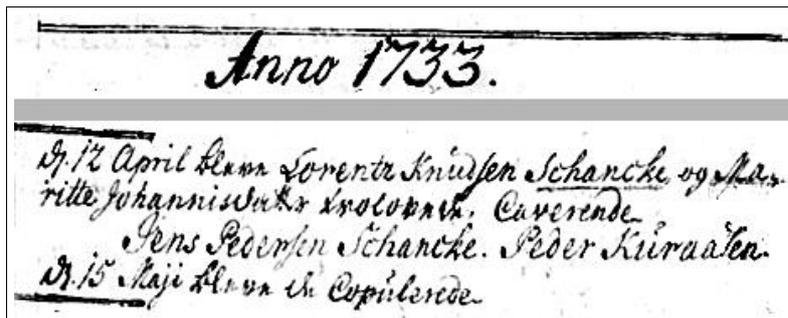 Anno 1733.
d. 12 April bleve Lorentz Knudsen Schancke og Ma-
ritte Johannisdatter trolovede. Caverende
Jens Pedersen Schancke. Peder Kuraasen.
d. 15 Maji bleve de Copulerede